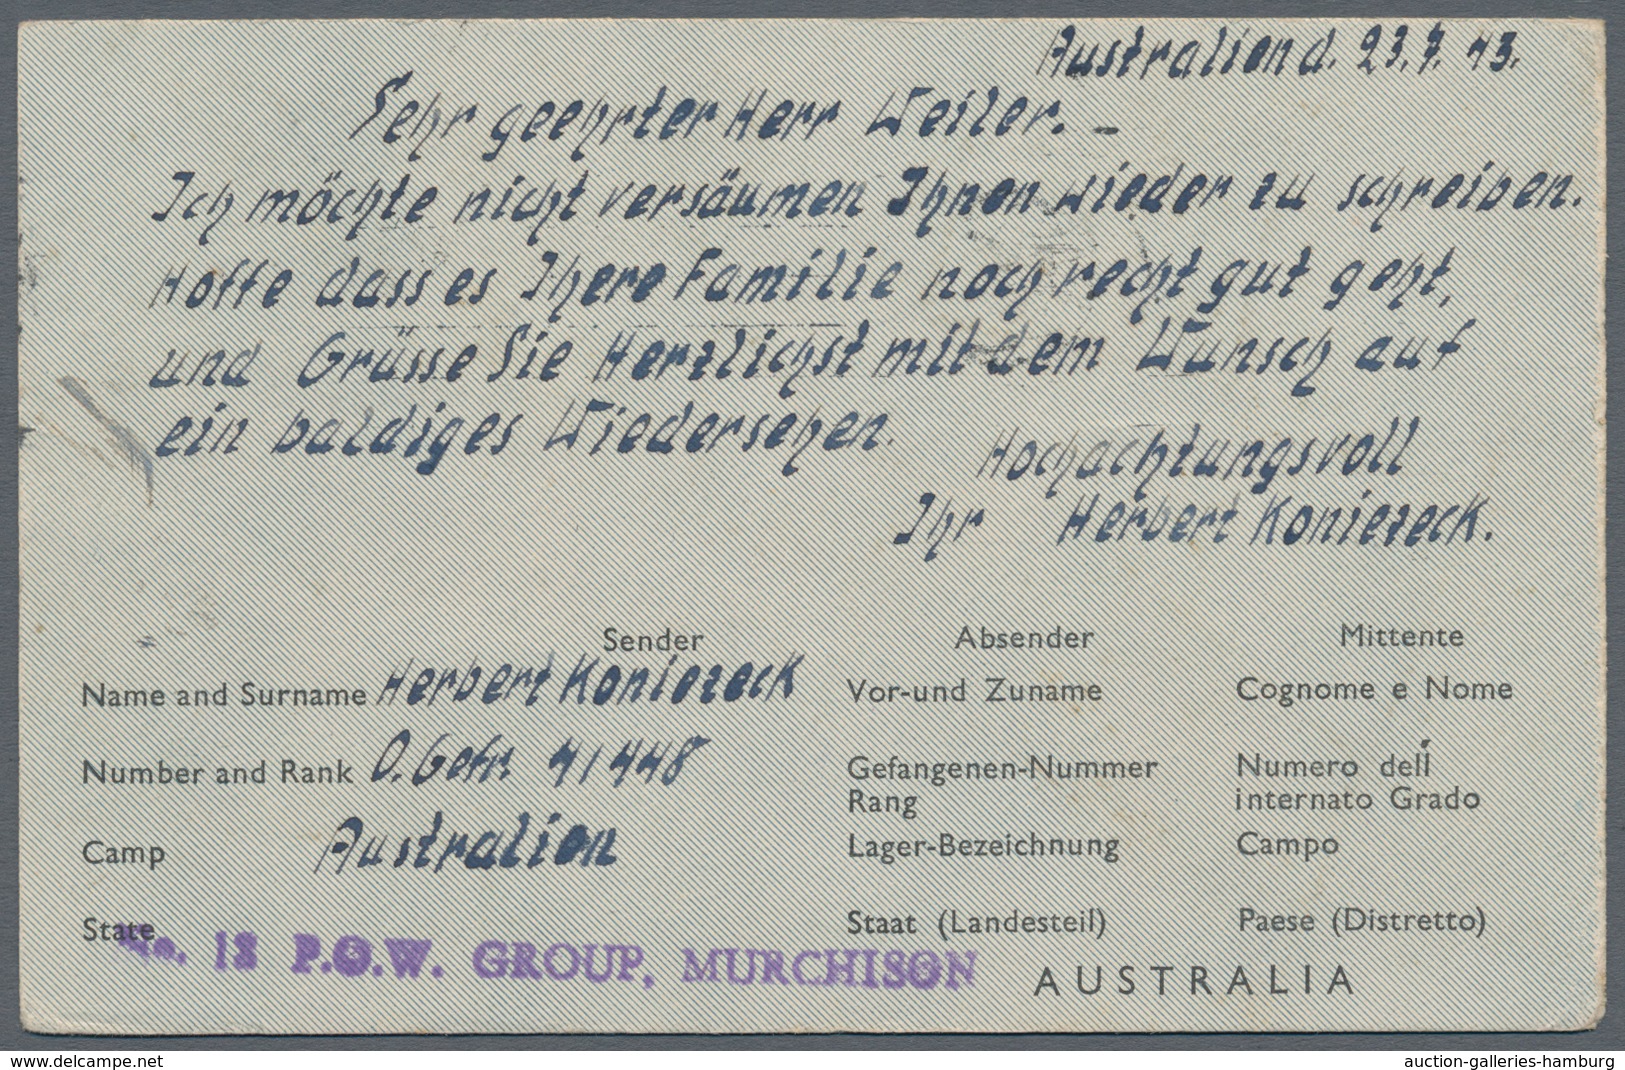 Australien d. 23.7.43.
Sehr geehrter Herr Weiler. –
Ich möchte nicht versäumen Ihnen wieder zu schreiben.
Hoffe dass es Ihere Familie noch recht gut geht,
und Grüsse Sie Herzlichst mit dem Wunsch auf
ein baldiges Wiedersehen.
Hochachtungsvoll
Ihr Herbert Koniezeck.
Sender Absender Mittente
Name and Surname Herbert Koniezeck Vor-und Zuname Cognome e Nome
Number and Rank O.Gefr. 41448 Gefangenen-Nummer Rang Numero dell internato Grado
Camp Australien Lager-Bezeichnung Campo
State Staat (Landesteil) Paese (Distretto)
No. 13 P.O.W. GROUP, MURCHISON
AUSTRALIA
www.delcampe.net auction-galleries-hamburg